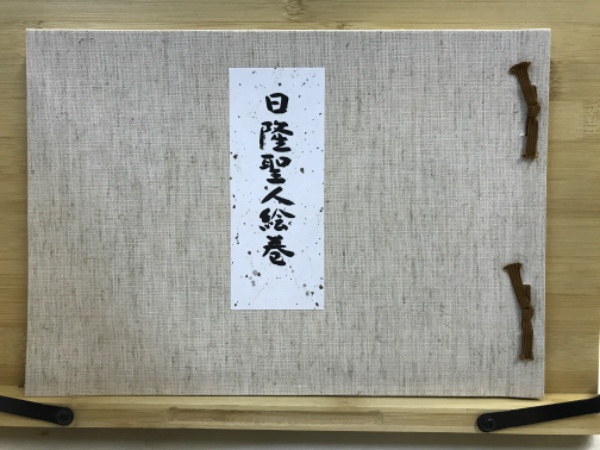 日隆聖人絵巻